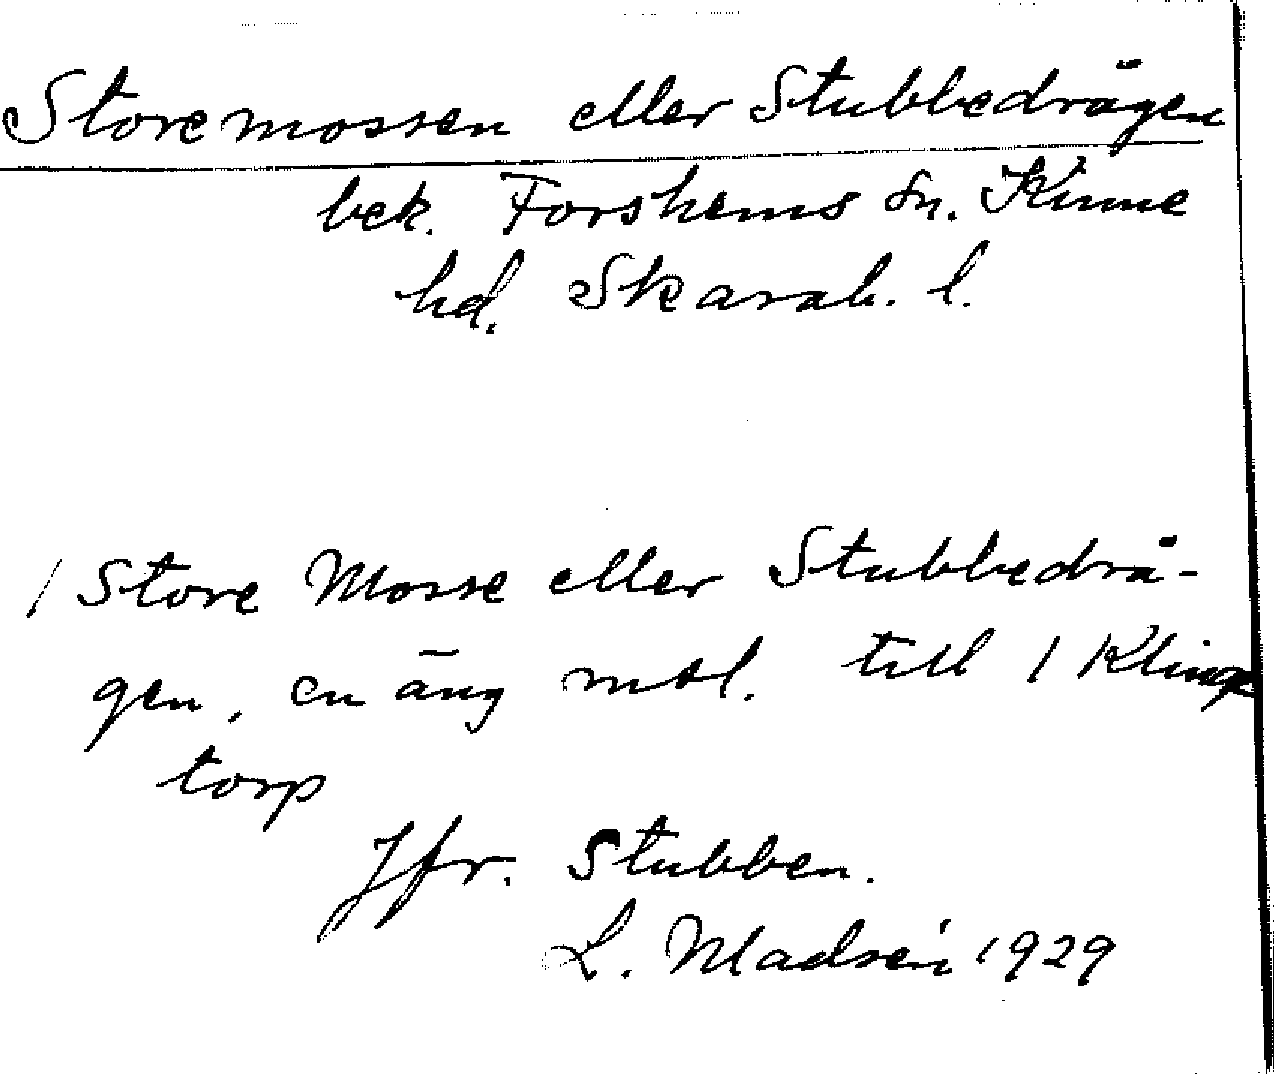 Storemossen eller Stubbedrägen
bek. Forshems sn. Kinne
hd. Skarab. l.
/ Store Mosse eller Stubbedrä-
gen, en äng
till / Kling
torp
Jfr. Stubben.
L. Madsén 1929